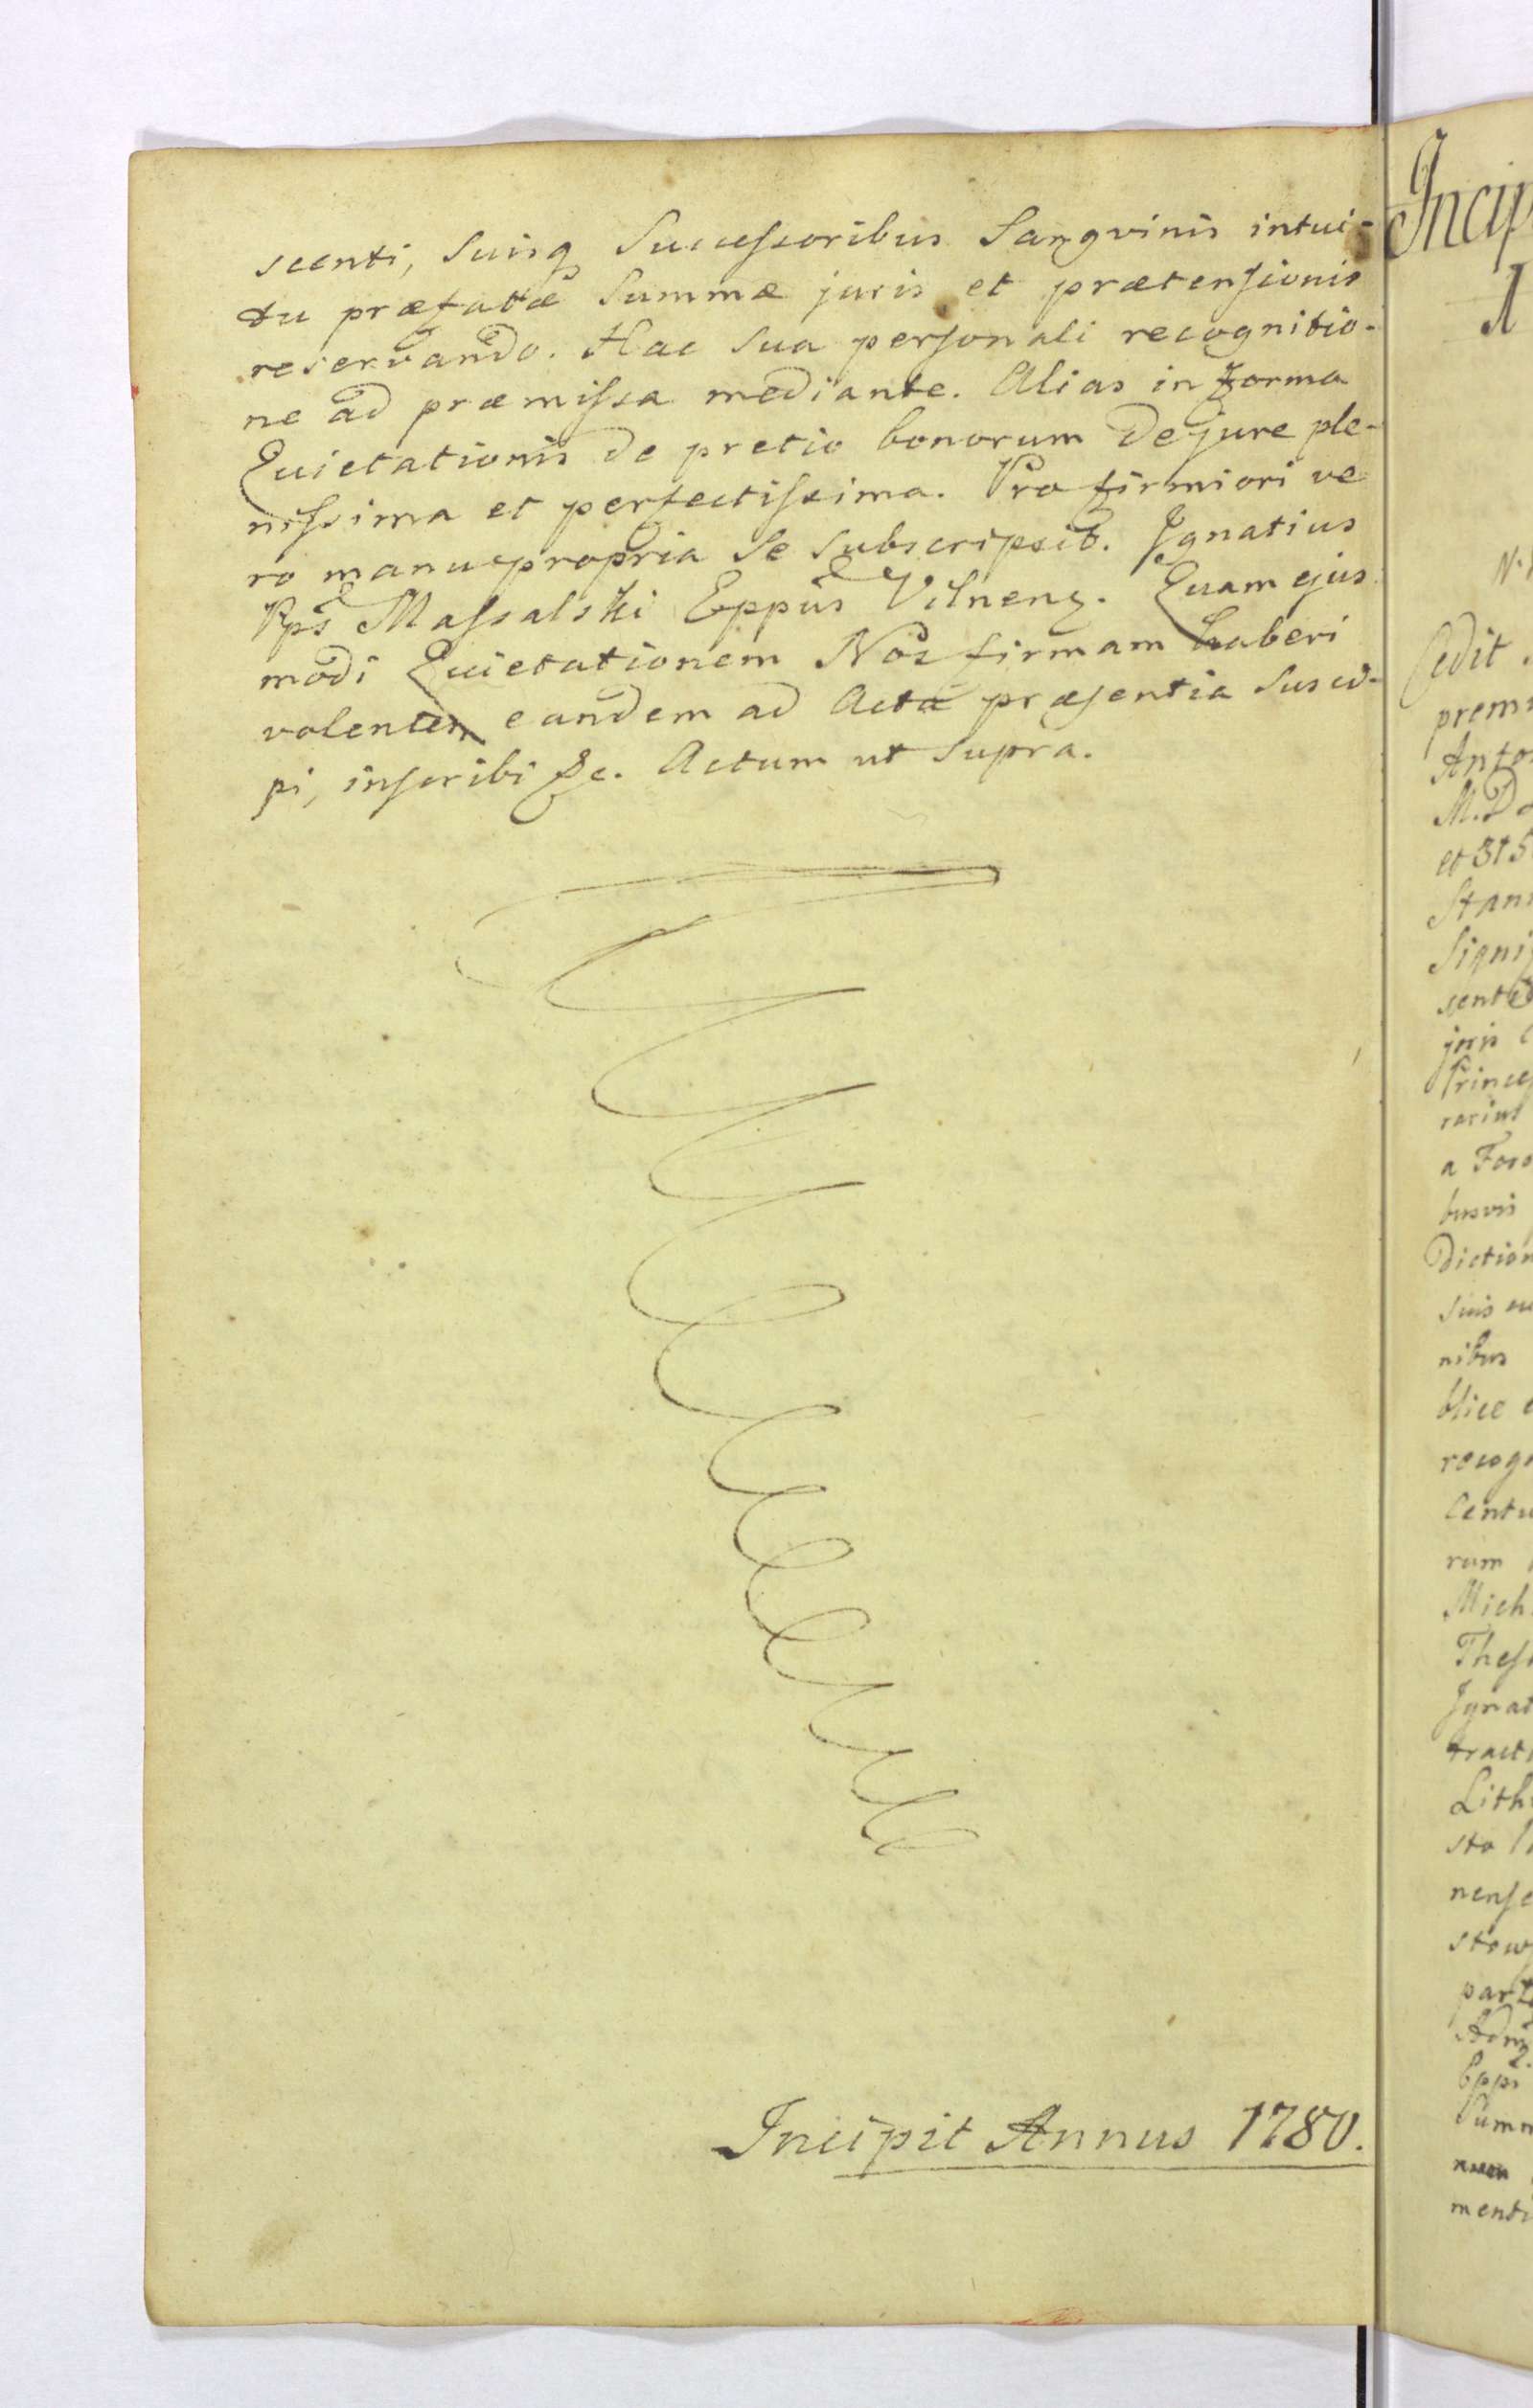 scenti, Suisq Successoribus Sangvinis intui-
tu præfatæ Summæ juris et prætensionis
reservando. Hac Sua personali recognitio-
ne ad præmissa mediante. Alias in forma
Quietationis de pretio bonorum de jure ple-
nissima et perfectissima. Pro firmiori ve
ro manu propria Se Subscripsit. Ignatius
Pps Massalski Eppus Vilnens. Quam ejus
modi Quietationem Nos firmam haberi
volentes eandem ad Acta præsentia Susci-
pi, inscribi &c. Actum ut Supra.
Incipit Annus 1780.
Incip
A
N.
Cedit
prem
Anto
M.D
et 315
Stani
Signi
sent
joris
Princ
rarius
a Foro
busvis
diction
Suis
nibus
blice
recog
Centu
rum
Mich
Thes
Ignat
tract
Lith
sto
nense
stow
part
Adm
Eppi
Summ
menti